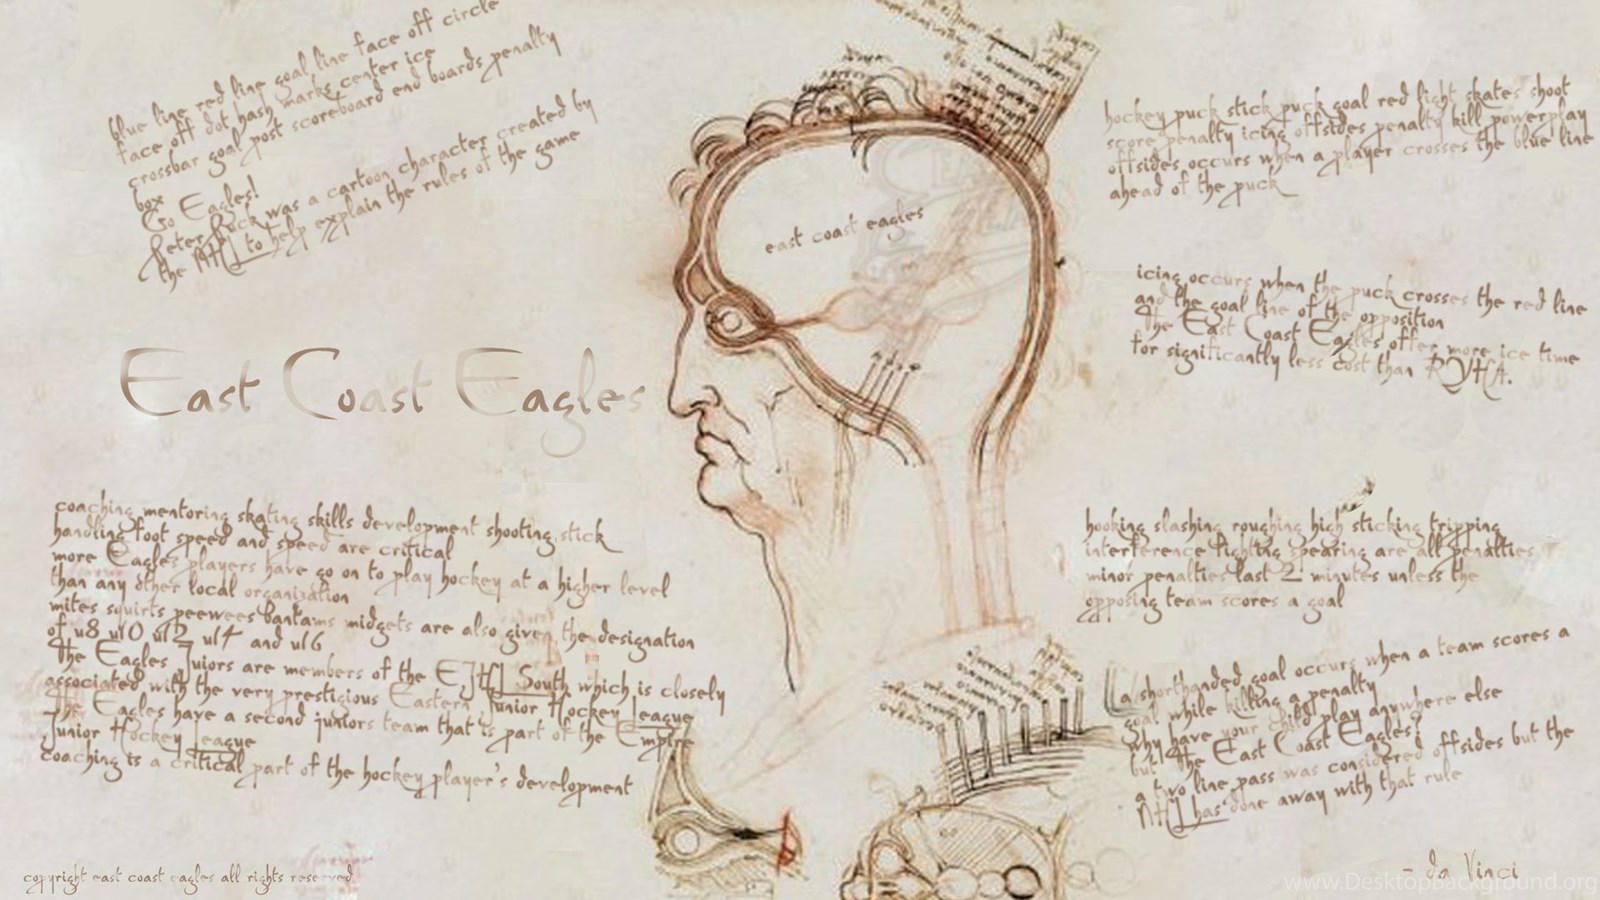 blue line red line goal line face off circle
face off dot hash marks center ice
crossbar goal post scoreboard end boards penalty
box
Go Eagles!
Peter Puck was a cartoon character created by
the NHL to help explain the rules of the game
East Coast Eagles
coaching mentoring skating skills development shooting stick
handling foot speed and speed are critical
more Eagles players have go on to play hockey at a higher level
than any other local organization
mites squirts peewees bantams midgets are also given the designation
of u8 u10 u12 u14 and u16
The Eagles Juiors are members of the EJHL South which is closely
associated with the very prestigious Eastern Junior Hockey League
The Eagles have a second juniors team that's part of the Empire
Junior Hockey League
coaching is a critical part of the hockey player's development
copyright east coast eagles all rights reserved
east coast eagles
hockey puck stick puck goal red light skates shoot
score penalty icing offsides penalty kill powerplay
offsides occurs when a player crosses the blue line
ahead of the puck
icing occurs when the puck crosses the red line
and the goal line of the opposition
The East Coast Eagles offer more ice time
for significantly less cost than RYHA.
hooking slashing roughing high sticking tripping
interference fighting spearing are all penalties
minor penalties last 2 minutes unless the
opposing team scores a goal
a shorthanded goal occurs when a team scores a
goal while killing a penalty
why have your child play anywhere else
but The East Coast Eagles?
a two line pass was considered offsides but the
NHL has done away with that rule
- da Vinci
www.DesktopBackground.org